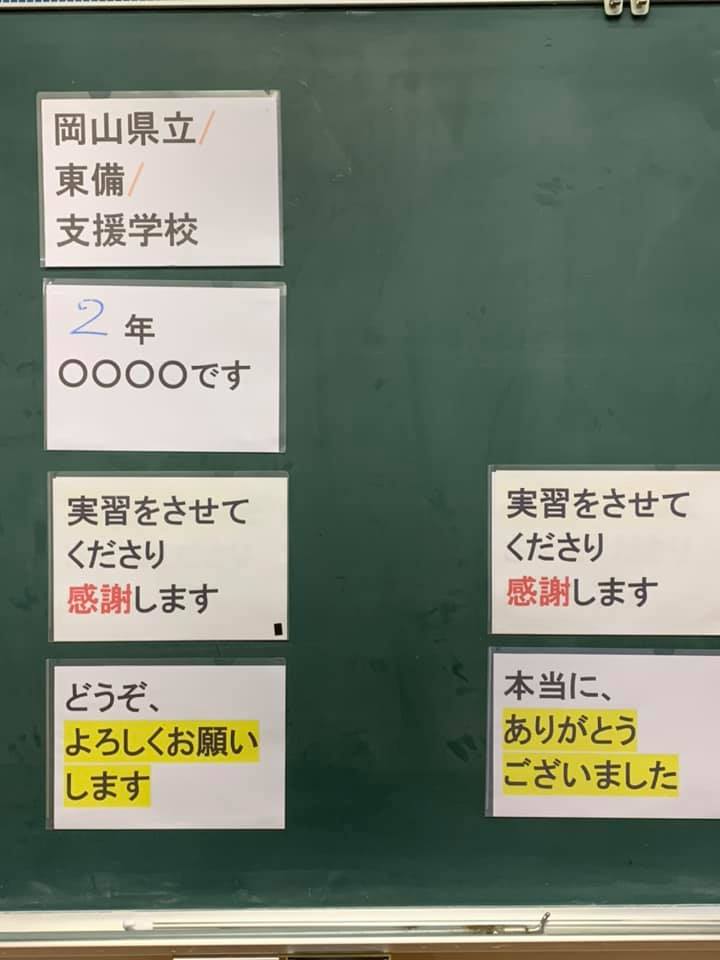 岡山県立/
東備/
支援学校
2年
〇〇〇〇です
実習をさせて
くださり
感謝します
どうぞ、
よろしくお願い
します
実習をさせて
くださり
感謝します
本当に、
ありがとう
ございました